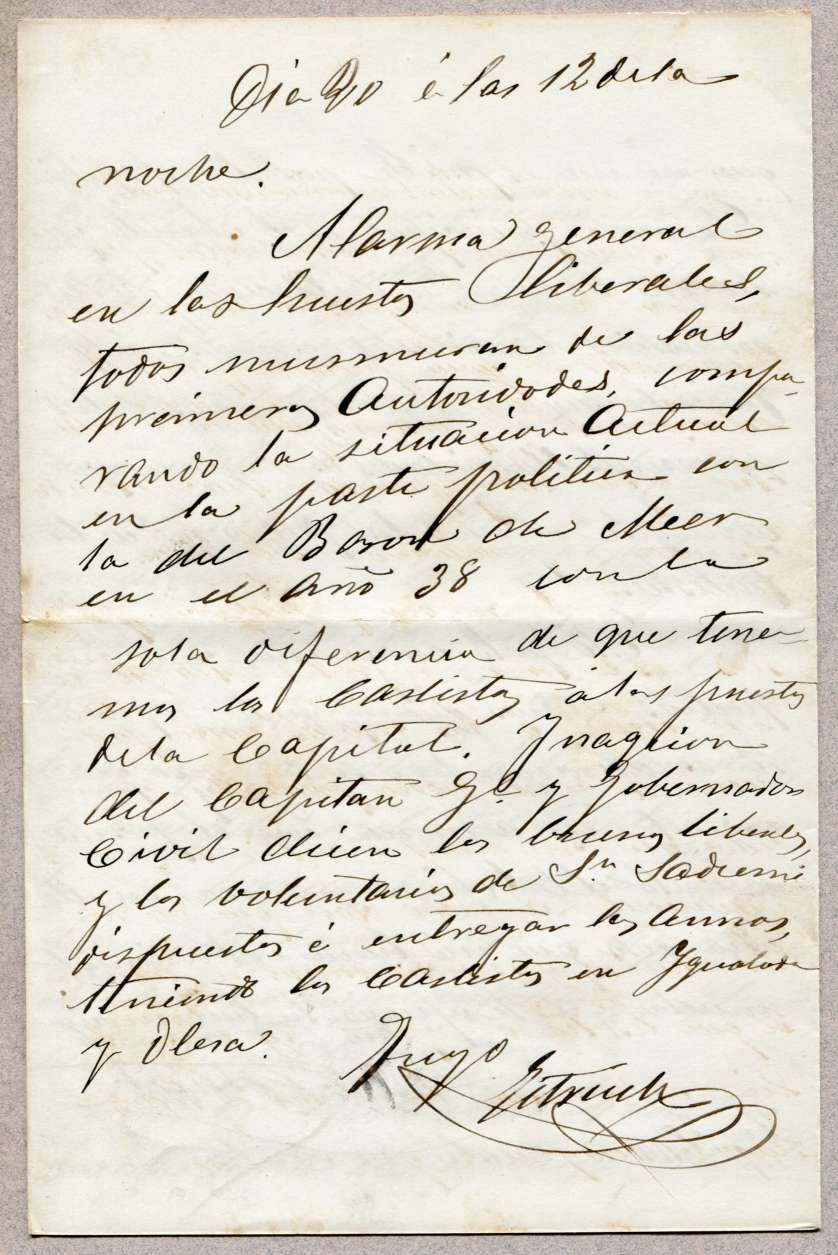 Dia 20 á las 12 de la
noche.
Alarma general
en las huestes liberales,
todos murmuran de las
primeras Autoridades, compa-
rando la situacion Actual
en la parte politica con
la del Baron de Meer
en el año 38 con la
sola diferencia de que tene-
mos los Carlistas á las puertas
de la Capital. Ynaccion
del Capitan Gl. y Gobernador
Civil dicen los buenos liberales,
y los voluntarios de Sn. Sadurni
dispuestos á entregar las Armas,
teniendo los Carlistas en Ygualada
y Olesa.
Suyo